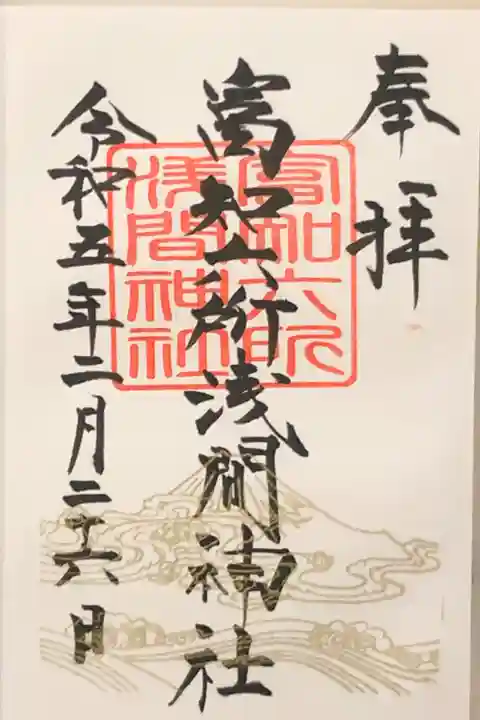 奉拝
富知六所浅間神社
令和五年二月二十六日
富知六所
浅間神社